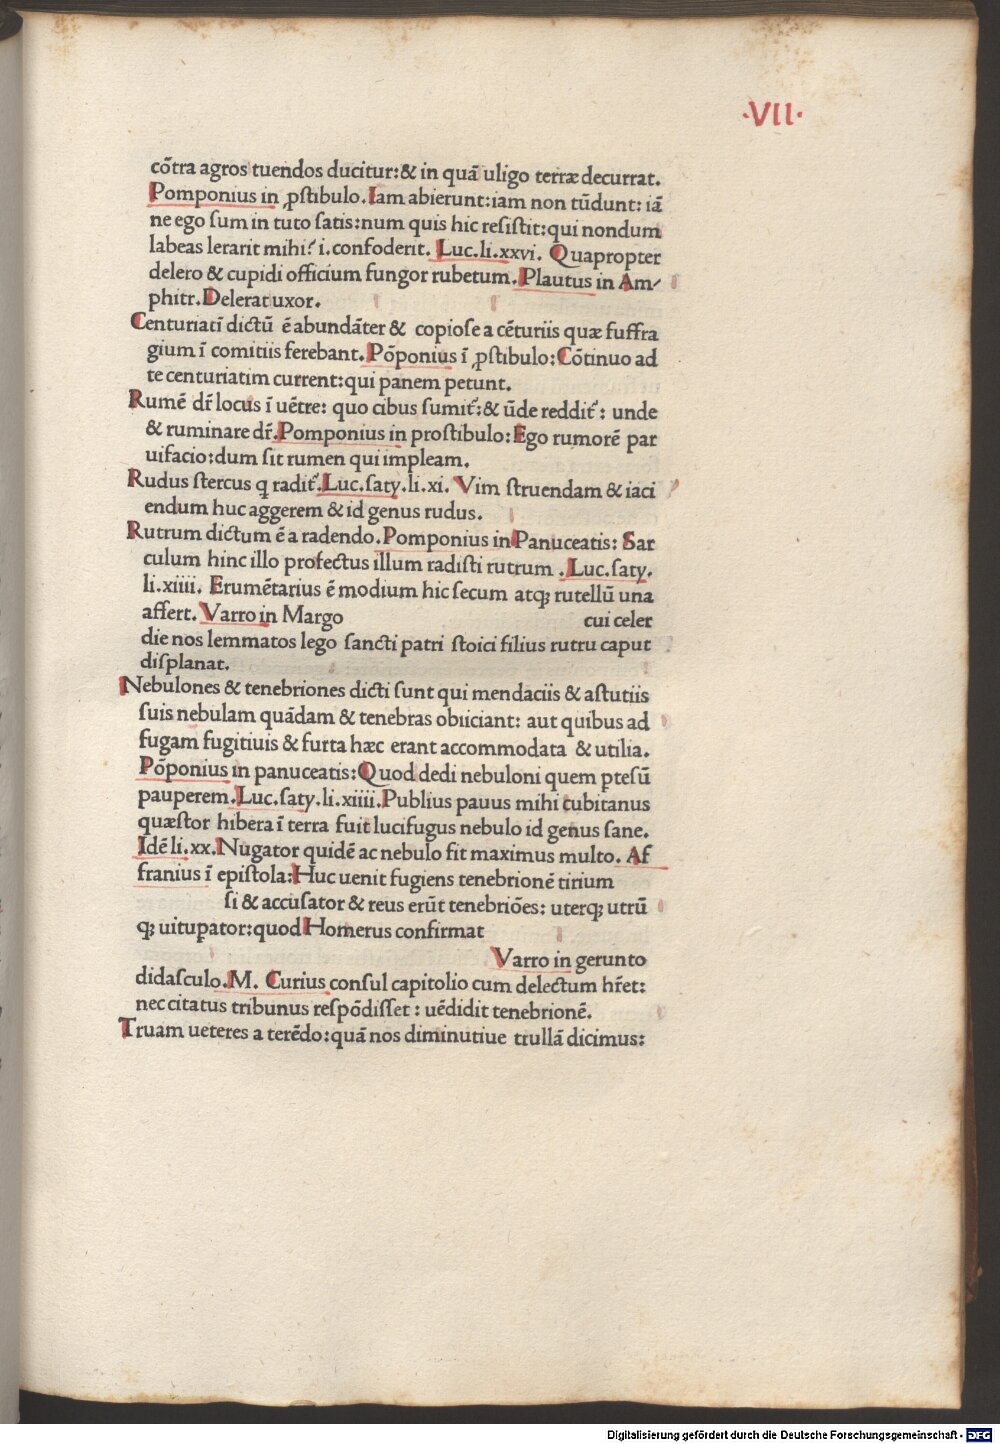 ·VII·
cõtra agros tuendos ducitur:& in quã uligo terræ decurrat.
Pomponius in ꝓstibulo. Iam abierunt:iam non tũdunt: iã
ne ego sum in tuto satis:num quis hic resistit:qui nondum
labeas lerarit mihi? i. confoderit. Luc.li.xxvi. Quapropter
delero & cupidi officium fungor rubetum. Plautus in Am/
phitr. Delerat uxor.
Centuriatĩ dictũ ẽ abundãter & copiose a cẽturiis quæ fuffra
gium ĩ comitiis ferebant. Põponius ĩ ꝓstibulo: Cõtinuo ad
te centuriatim current:qui panem petunt.
Rumẽ dr̃ locus ĩ uẽtre: quo cibus sumit᷑:& ũde reddit᷑: unde
& ruminare dr̃. Pomponius in prostibulo: Ego rumorẽ par
uifacio:dum sit rumen qui impleam.
Rudus stercus q radit᷑. Luc. saty. li. xi. Vim struendam & iaci
endum huc aggerem & id genus rudus.
Rutrum dictum ẽ a radendo. Pomponius in Panuceatis: Sar
culum hinc illo profectus illum radisti rutrum . Luc. saty.
li. xiiii. Erumẽtarius ẽ modium hic secum atq; rutellũ una
affert. Varro in Margo cui celer
die nos lemmatos lego sancti patri stoici filius rutru caput
displanat.
Nebulones & tenebriones dicti sunt qui mendaciis & astutiis
suis nebulam quãdam & tenebras obiiciant: aut quibus ad
fugam fugitiuis & furta hæc erant accommodata & utilia.
Põponius in panuceatis: Quod dedi nebuloni quem ptesũ
pauperem. Luc. saty. li. xiiii. Publius pauus mihi tubitanus
quæstor hibera ĩ terra fuit lucifugus nebulo id genus sane.
Idẽ li. xx. Nugator quidẽ ac nebulo fit maximus multo. Af
franius ĩ epistola: Huc uenit fugiens tenebrionẽ tirium
si & accusator & reus erũt tenebriões: uterq; utrũ
q; uituꝑator:quod Homerus confirmat
Varro in gerunto
didasculo. M. Curius consul capitolio cum delectum hr̃et:
nec citatus tribunus respõdisset : uẽdidit tenebrionẽ.
Truam ueteres a terẽdo:quã nos diminutiue trullã dicimus:
Digitalisierung gefördert durch die Deutsche Forschungsgemeinschaft - DFG